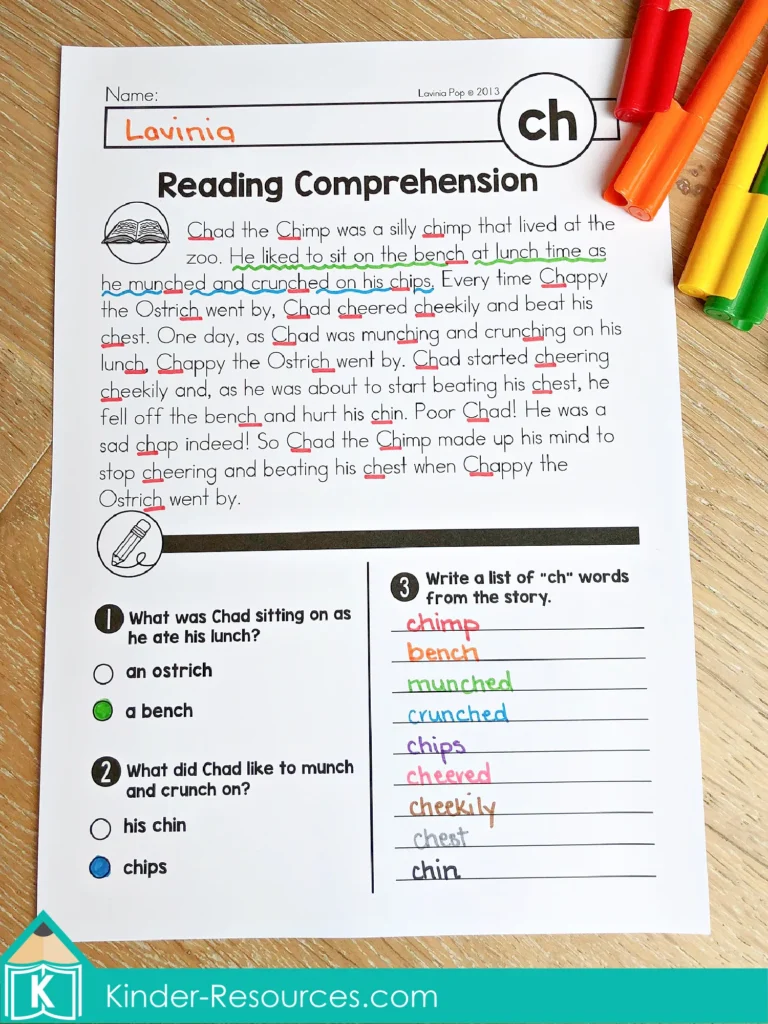 Name:
Lavinia Pop © 2013
Lavinia
ch
Reading Comprehension
Chad the Chimp was a silly chimp that lived at the
zoo. He liked to sit on the bench at lunch time as
he munched and crunched on his chips. Every time Chappy
the Ostrich went by, Chad cheered cheekily and beat his
chest. One day, as Chad was munching and crunching on his
lunch, Chappy the Ostrich went by. Chad started cheering
cheekily and, as he was about to start beating his chest, he
fell off the bench and hurt his chin. Poor Chad! He was a
sad chap indeed! So Chad the Chimp made up his mind to
stop cheering and beating his chest when Chappy the
Ostrich went by.
1 What was Chad sitting on as
he ate his lunch?
an ostrich
a bench
2 What did Chad like to munch
and crunch on?
his chin
chips
3 Write a list of "ch" words
from the story.
chimp
bench
munched
crunched
chips
cheered
cheekily
chest
chin
K
Kinder-Resources.com